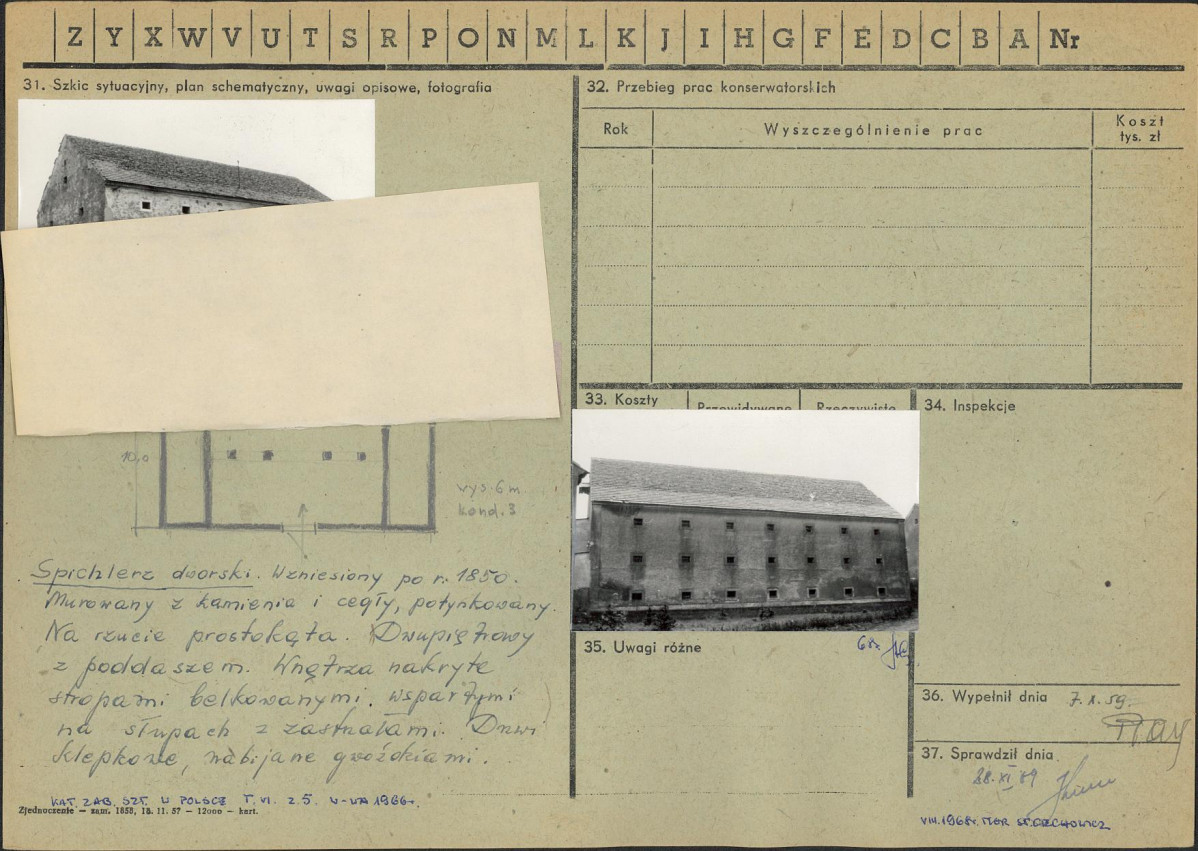 Z Y X W V U T S R P O N M L K J I H G F E D C B A Nr
31. Szkic sytuacyjny, plan schematyczny, uwagi opisowe, fotografia
10,0
wys. 6 m
kond. 3
Spichlerz dworski. Wzniesiony po r. 1850.
Murowany z kamienia i cegły, potynkowany.
Na rzucie prostokąta. Dwupiętrowy
z poddaszem. Wnętrza nakryte
stropami belkowanymi, wspartymi
na słupach z zastrzałami. Drzwi
klepkowe, nabijane gwoździami.
KAT. ZAB. SZT. W POLSCE T. VI. Z 5. W-WA 1966r.
Zjednoczenie — zam. 1858, 18. 11. 57 — 12000 — kart.
32. Przebieg prac konserwatorskich
Rok Wyszczególnienie prac Koszt tys. zł
33. Koszty Przewidywane Rzeczywiste
34. Inspekcje
68r.
35. Uwagi różne
36. Wypełnił dnia 7.X.59.
37. Sprawdził dnia
28.XI 59
VIII.1968r. MGR ST. CECHOWICZ